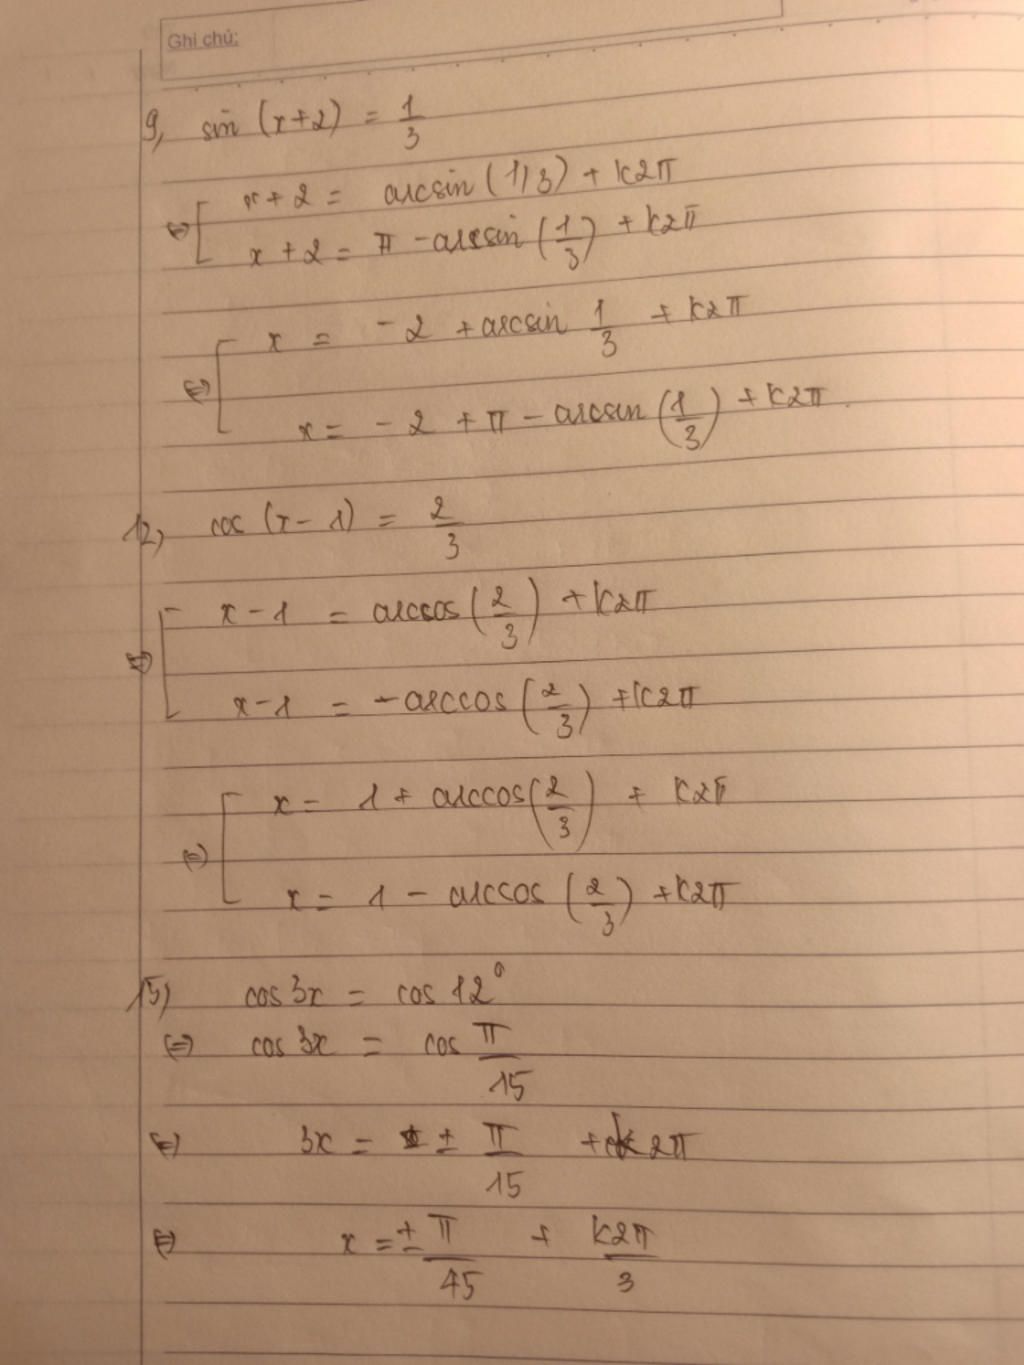 Ghi chú:
9, sin (x+2) = 1/3
⇔ [ x + 2 = arcsin (1/3) + k2π
x + 2 = π - arcsin (1/3) + k2π
⇔ [ x = -2 + arcsin 1/3 + k2π
x = -2 + π - arcsin (1/3) + k2π.
12) cos (x - 1) = 2/3
⇔ [ x - 1 = arccos (2/3) + k2π
x - 1 = -arccos (2/3) + k2π
⇔ [ x = 1 + arccos (2/3) + k2π
x = 1 - arccos (2/3) + k2π
15) cos 3x = cos 12°
⇔ cos 3x = cos π/15
⇔ 3x = ± π/15 + k2π
⇔ x = ± π/45 + k2π/3